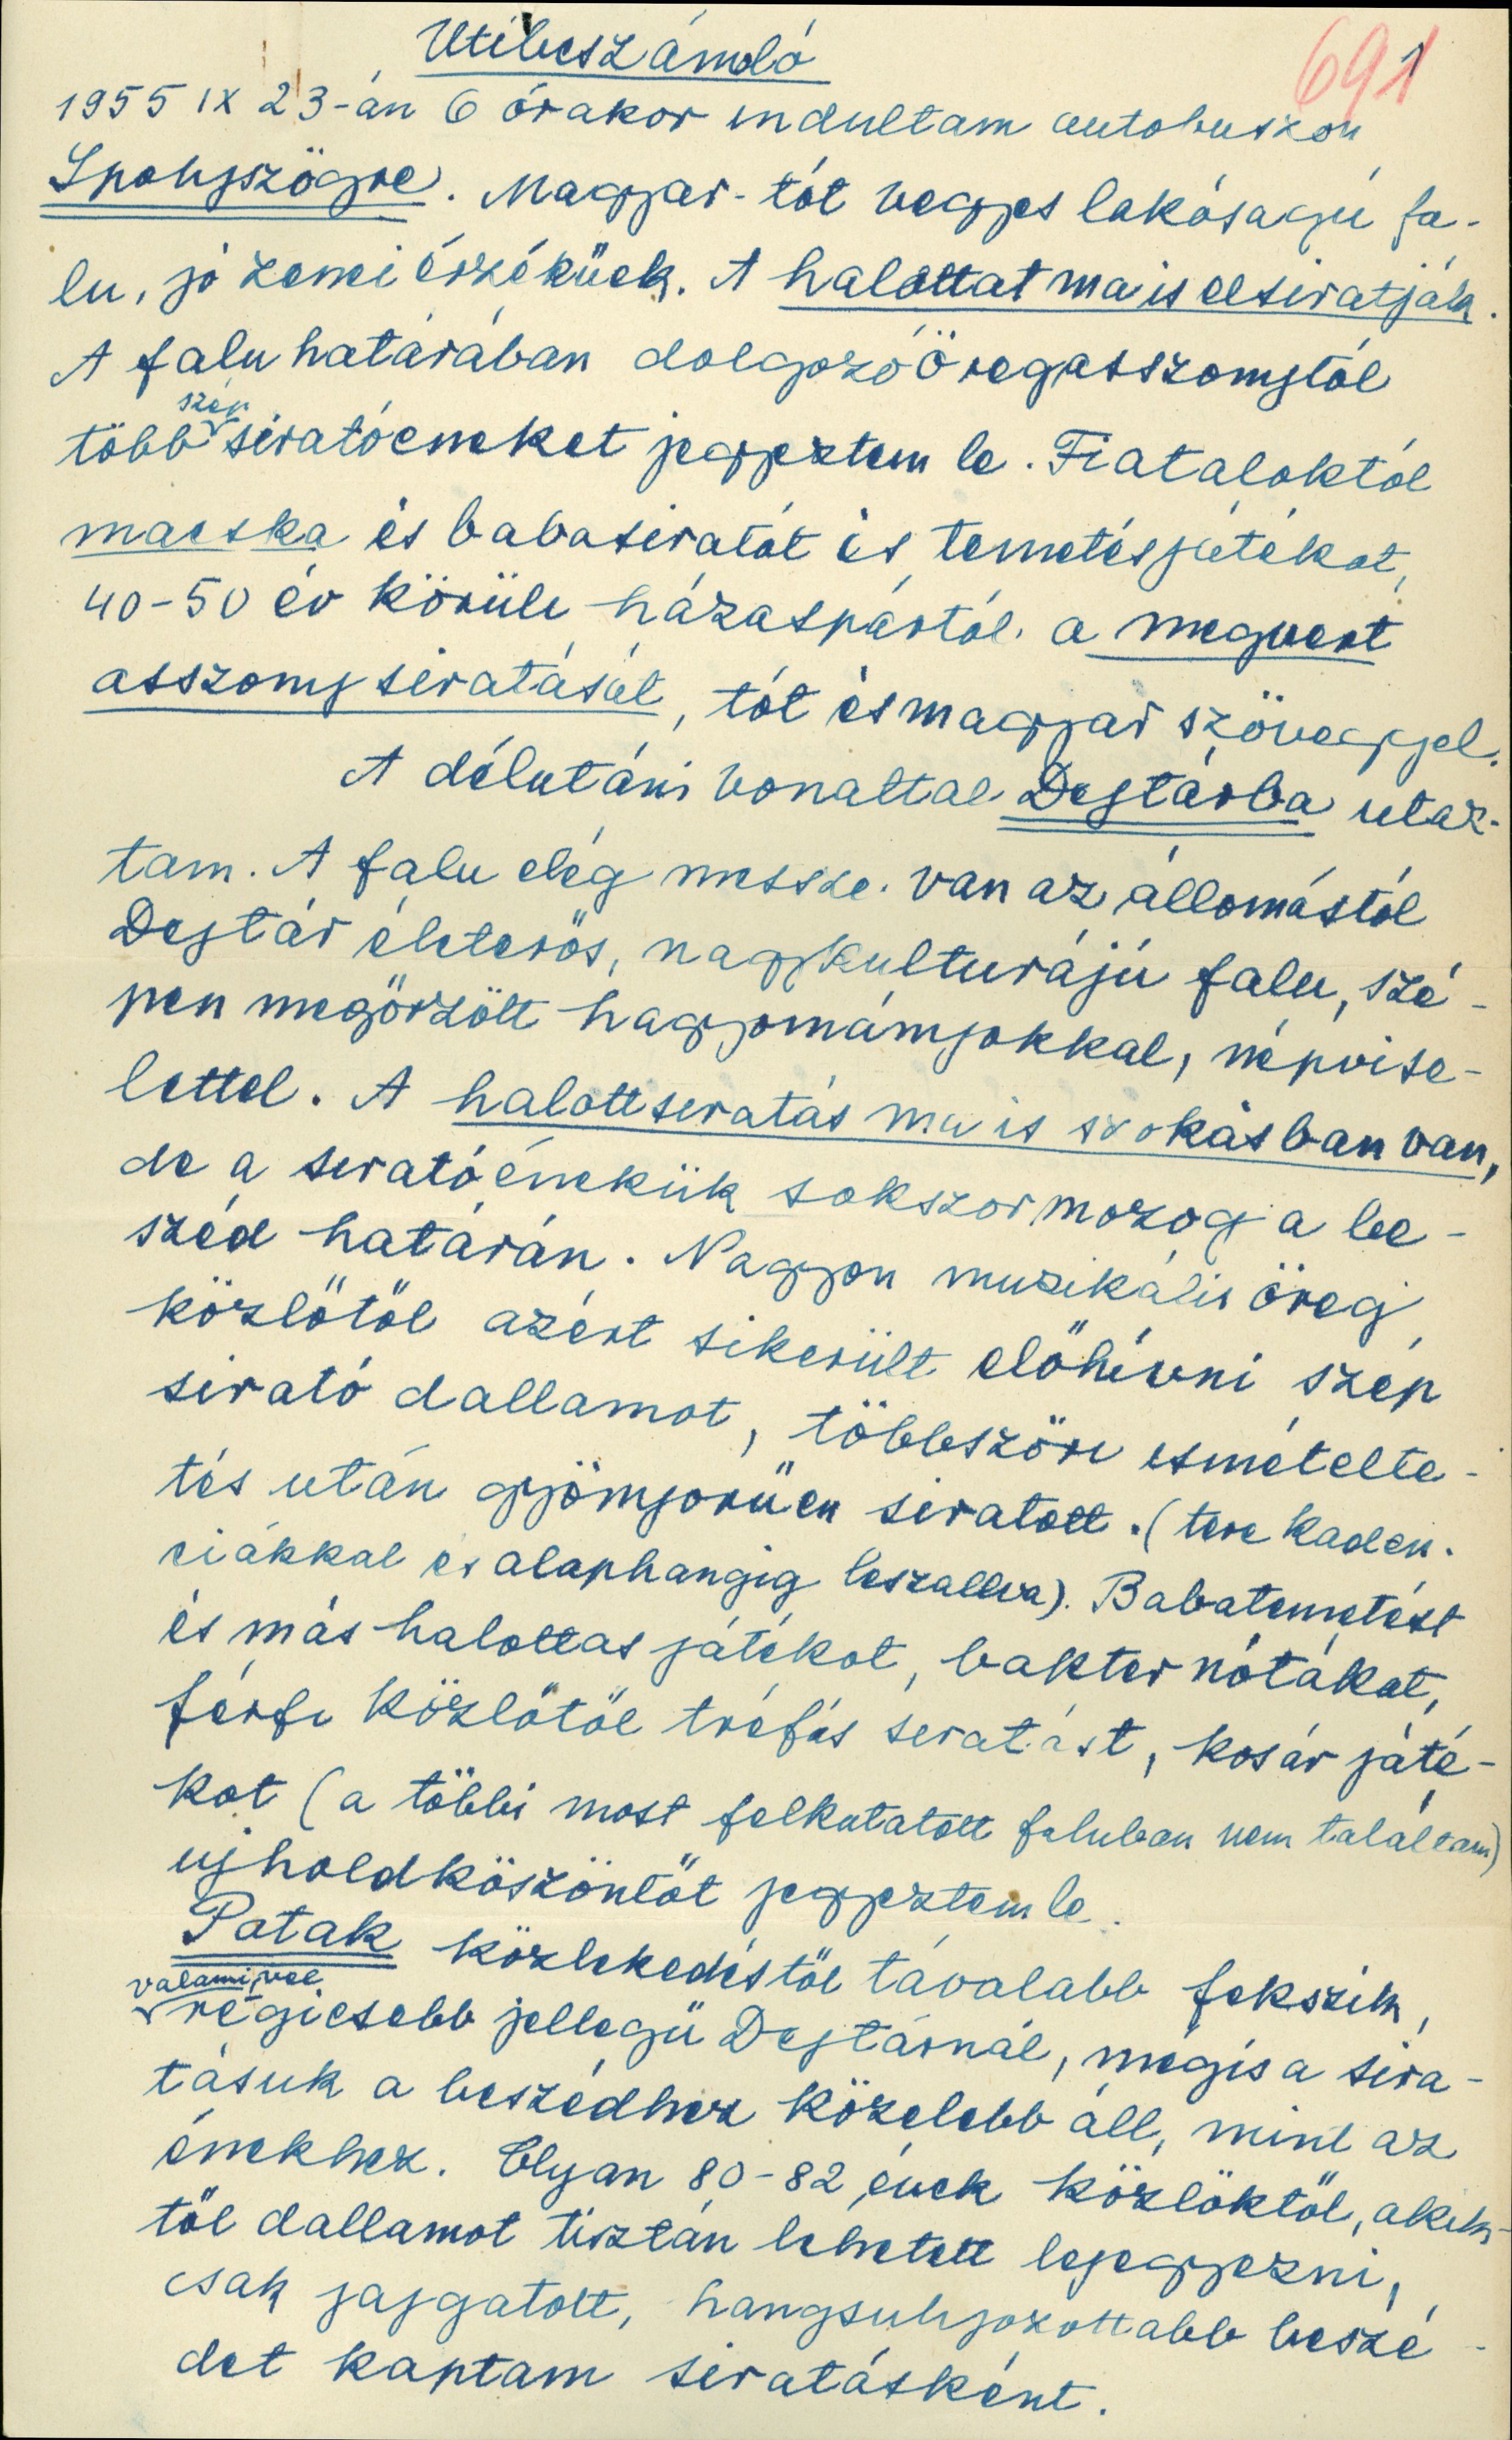 Utibeszámoló
691
1955 IX 23-án 6 órakor indultam autobuszon
Ipolyszögre. Magyar-tót vegyes lakóságú fa-
lu, jó zenei érzékűek. A halottat ma is elsiratják.
A falu határában dolgozó öregasszonytól
több szép siratóéneket jegyeztem le. Fiataloktól
macska és babasiratót és temetésjátékot,
40-50 év körüli házaspártól a megvert
asszony siratását, tót és magyar szöveggel.
A délutáni vonattal Dejtárba utaz-
tam. A falu elég messze van az állomástól
Dejtár életerős, nagykulturájú falu, szé-
pen megőrzött hagyományokkal, népvise-
lettel. A halottsiratás ma is szokásban van,
de a siratóénekük sokszor mozog a be-
széd határán. Nagyon muzikális öreg
közlőtől azért sikerült előhívni szép
sirató dallamot, többszöri ismételte-
tés után gyönyörűen siratott. (tere kaden-
ciákkal és alaphangig leszállva). Babatemetést
és más halottas játékot, bakter nótákat,
férfi közlőtől tréfás siratást, kosár játé-
kot (a többi most felkutatott faluban nem találtam)
ujholdköszöntőt jegyeztem le.
Patak közlekedéstől távolabb fekszik,
valamivel régiesebb jellegű Dejtárnál, mégis a sira-
tásuk a beszédhez közelebb áll, mint az
énekhez. Olyan 80-82 évek közlőktől, akik-
től dallamot tisztán lehetett lejegyezni,
csak jajgatott, hangsulyozottabb beszé-
det kaptam siratásként.